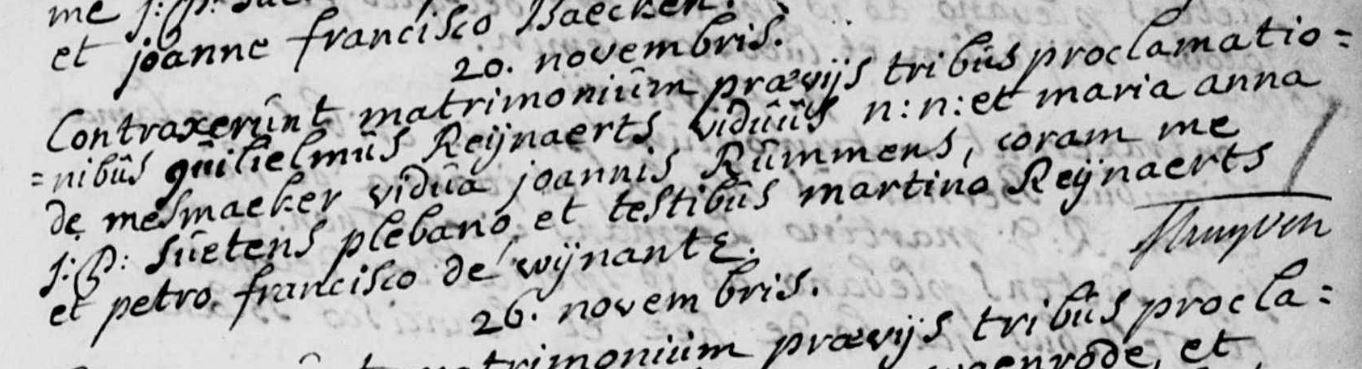 me j: p:
et joanne francisco Baecken.
20. novembris.
Contraxerûnt matrimoniûm prævijs tribûs proclamatio=
=nibûs gûilielmûs Reijnaerts vidûûs n:n: et maria anna
de mesmaeker vidûa joannis Rûmmens, coram me
j: p: sûetens plebano et testibûs martino Reijnaerts
et petro francisco de wijnants.
26. novembris.
matrimonium prævijs tribûs procla=
et